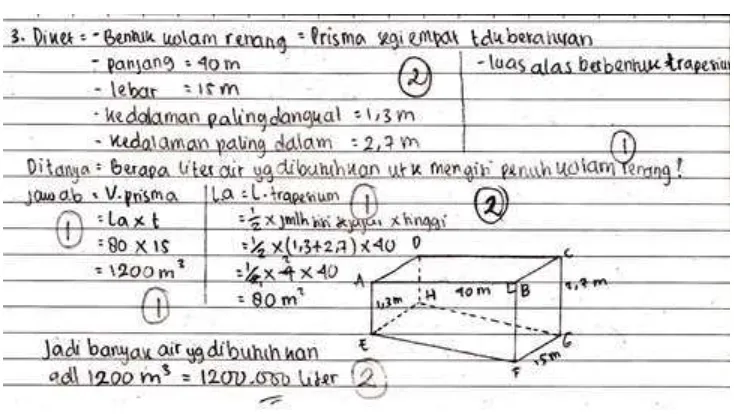 3. Diket = - Bentuk kolam renang = Prisma segi empat tdk beraturan
- panjang = 40 m
- lebar = 15 m
②
- kedalaman paling dangkal = 1,3 m
- kedalaman paling dalam = 2,7 m
- luas alas berbentuk trapesium
①
Ditanya = Berapa liter air yg dibutuhkan utk mengisi penuh kolam renang!
jawab = V. prisma
= La x t
= 80 x 15
= 1200 m³
①
①
La = L. trapesium
①
②
= 1/2 x jmlh sisi sejajar x tinggi
= 1/2 x (1,3+2,7) x 40
= 1/2 x 4 x 40
= 80 m²
D
C
A
1,3m
H
40 m
B
2,7 m
E
G
15m
F
Jadi banyak air yg dibutuhkan
adl 1200 m³ = 1200.000 liter
②